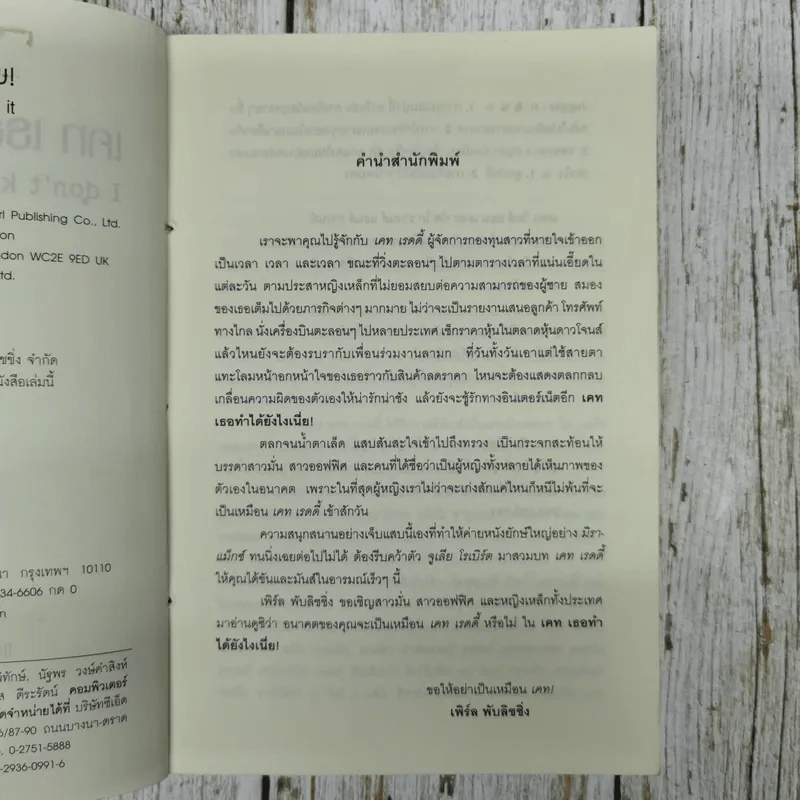 บ!
it
เคท เธอ
I don't k
rl Publishing Co., Ltd.
on
ndon WC2E 9ED UK
td.
ชซิ่ง จำกัด
ังสือเล่มนี้
นา กรุงเทพฯ 10110
34-6606 กด 0
ิทักษ์, นัฐพร วงษ์คำสิงห์
ส ตีระรัตน์ คอมพิวเตอร์
ดจำหน่ายได้ที่ บริษัทซีเอ็ด
6/87-90 ถนนบางนา-ตราด
. 0-2751-5888
-2936-0991-6
คำนำสำนักพิมพ์
เราจะพาคุณไปรู้จักกับ เคท เรดดี้ ผู้จัดการกองทุนสาวที่หายใจเข้าออก
เป็นเวลา เวลา และเวลา ขณะที่วิ่งตะลอนๆ ไปตามตารางเวลาที่แน่นเอี๊ยดใน
แต่ละวัน ตามประสาหญิงเหล็กที่ไม่ยอมสยบต่อความสามารถของผู้ชาย สมอง
ของเธอเต็มไปด้วยภารกิจต่างๆ มากมาย ไม่ว่าจะเป็นรายงานเสนอลูกค้า โทรศัพท์
ทางไกล นั่งเครื่องบินตะลอนๆ ไปหลายประเทศ เช็กราคาหุ้นในตลาดหุ้นดาวโจนส์
แล้วไหนยังจะต้องรบรากับเพื่อนร่วมงานลามก ที่วันทั้งวันเอาแต่ใช้สายตา
แทะโลมหน้าอกหน้าใจของเธอราวกับสินค้าลดราคา ไหนจะต้องแสดงตลกกลบ
เกลื่อนความผิดของตัวเองให้น่ารักน่าชัง แล้วยังจะชู้รักทางอินเตอร์เน็ตอีก เคท
เธอทำได้ยังไงเนี่ย!
ตลกจนน้ำตาเล็ด แสบสันสะใจเข้าไปถึงทรวง เป็นกระจกสะท้อนให้
บรรดาสาวมั่น สาวออฟฟิศ และคนที่ได้ชื่อว่าเป็นผู้หญิงทั้งหลายได้เห็นภาพของ
ตัวเองในอนาคต เพราะในที่สุดผู้หญิงเราไม่ว่าจะเก่งสักแค่ไหนก็หนีไม่พ้นที่จะ
เป็นเหมือน เคท เรดดี้ เข้าสักวัน
ความสนุกสนานอย่างเจ็บแสบนี้เองที่ทำให้ค่ายหนังยักษ์ใหญ่อย่าง มิรา-
แม็กซ์ ทนนิ่งเฉยต่อไปไม่ได้ ต้องรีบคว้าตัว จูเลีย โรเบิร์ต มาสวมบท เคท เรดดี้
ให้คุณได้ขันและมันส์ในอารมณ์เร็วๆ นี้
เพิร์ล พับลิชชิ่ง ขอเชิญสาวมั่น สาวออฟฟิศ และหญิงเหล็กทั้งประเทศ
มาอ่านดูซิว่า อนาคตของคุณจะเป็นเหมือน เคท เรดดี้ หรือไม่ ใน เคท เธอทำ
ได้ยังไงเนี่ย!
ขอให้อย่าเป็นเหมือน เคท!
เพิร์ล พับลิชชิ่ง